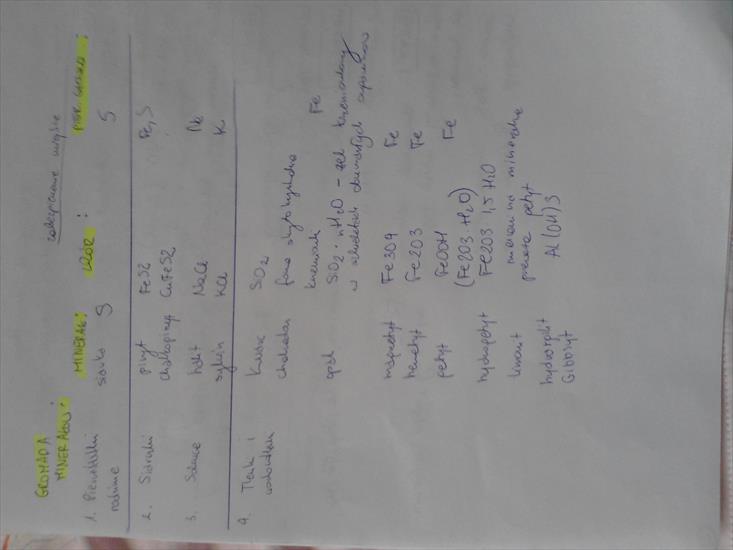 zabezpieczenie
GROMADA
MINERAŁÓW: MINERAŁ: WZÓR:
1. Pierwiastki siarka S S
rodzime
2. Siarczki piryt FeS2 Fe, S
chalkopiryt CuFeS2
3. halit NaCl Na
sylwin KCl K
4. Tlenki i kwarc SiO2
wodorotlenki chalcedon forma skrytokrystaliczna
krzemionki Fe
opal SiO2 · nH2O - żel krzemionkowy
w
magnetyt Fe3O4 Fe
hematyt Fe2O3 Fe
getyt FeOOH Fe
(Fe2O3 · H2O)
hydrogetyt Fe2O3 1,5 H2O
limonit
getyt
Gibbsyt Al(OH)3